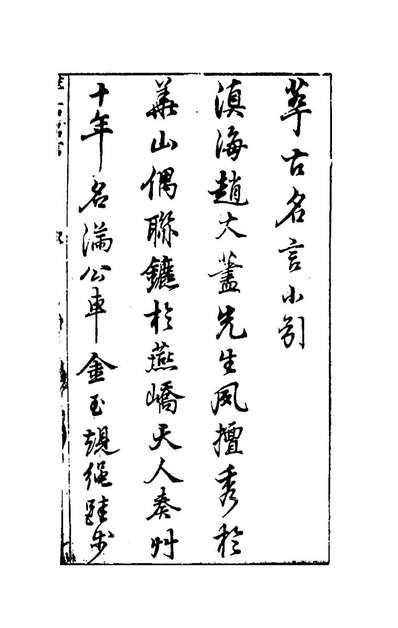 萃古名言小引
滇海趙大蓋先生夙擅秀於
華山偶聯鑣於燕嶠天人奏艸
十年名滿公車金玉規繩跬步